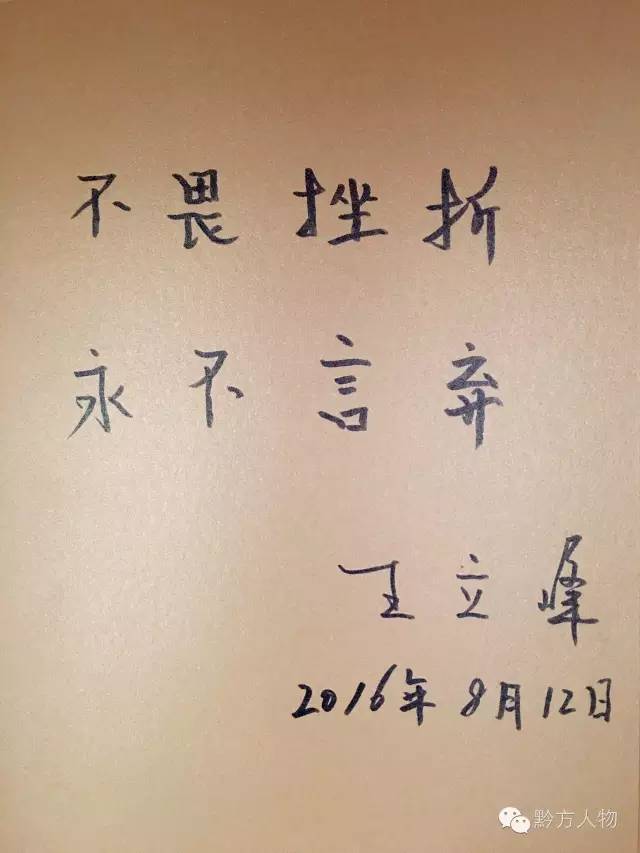 不畏挫折
永不言弃
王立峰
2016年8月12日
黔方人物